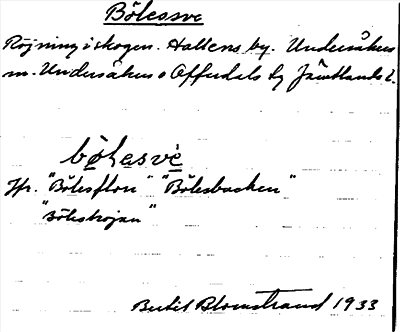 Bölessve
Röjning i skogen. Hallens by. Undersåkers
m. Undersåkers o Offerdals tg Jämtlands l.
bölesvè
Jfr. "Bölesflon" "Bölesbacken"
"Bölestrojan"
Bertil Blomstrand 1933